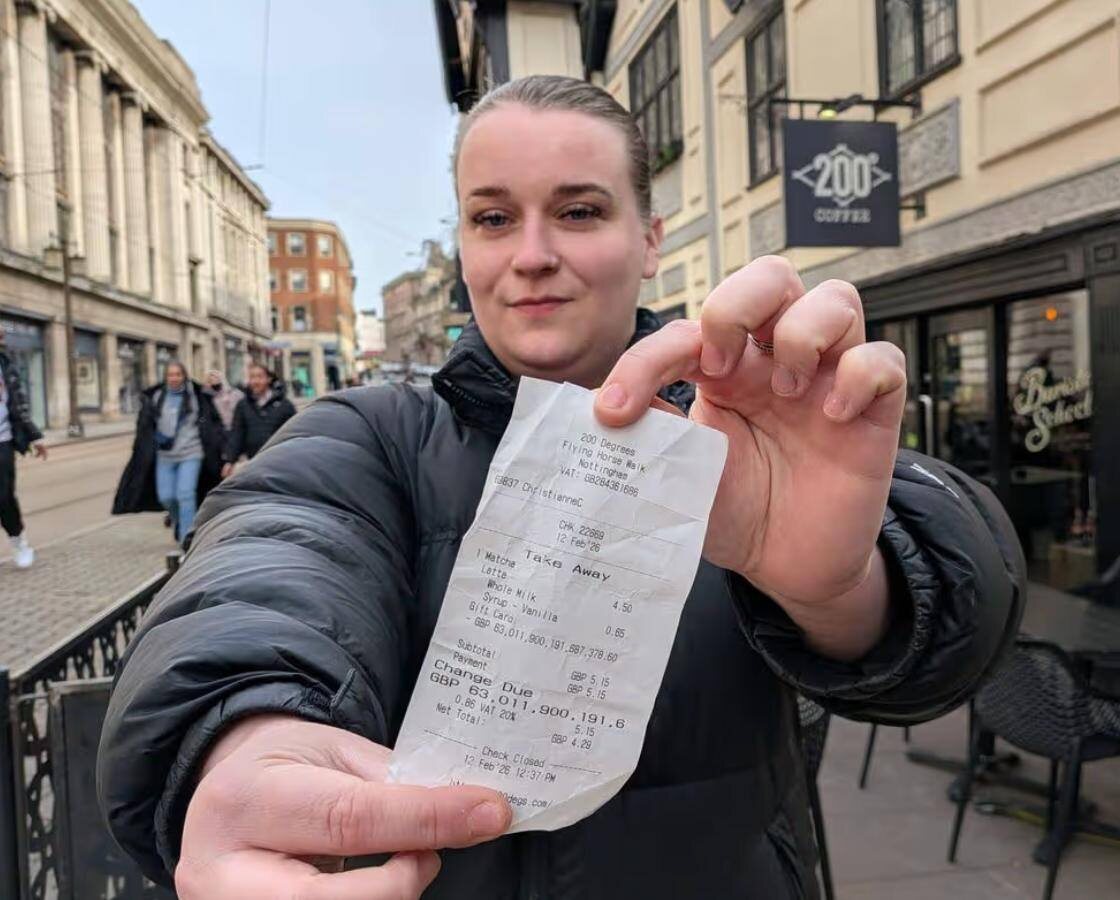 200°
COFFEE
Barista
School
200 Degrees
Flying Horse Walk
Nottingham
VAT: GB284361686
ChristianneC
CHK 22669
12 Feb'26
Take Away
1 Matcha Latte 4.50
Whole Milk
Syrup - Vanilla 0.65
Gift Card
- GBP 63,011,900,191,687,378.60
Subtotal GBP 5.15
Payment GBP 5.15
Change Due
GBP 63,011,900,191,6
0.86 VAT 20% 5.15
Net Total: GBP 4.29
Check Closed
12 Feb'26 12:37 PM